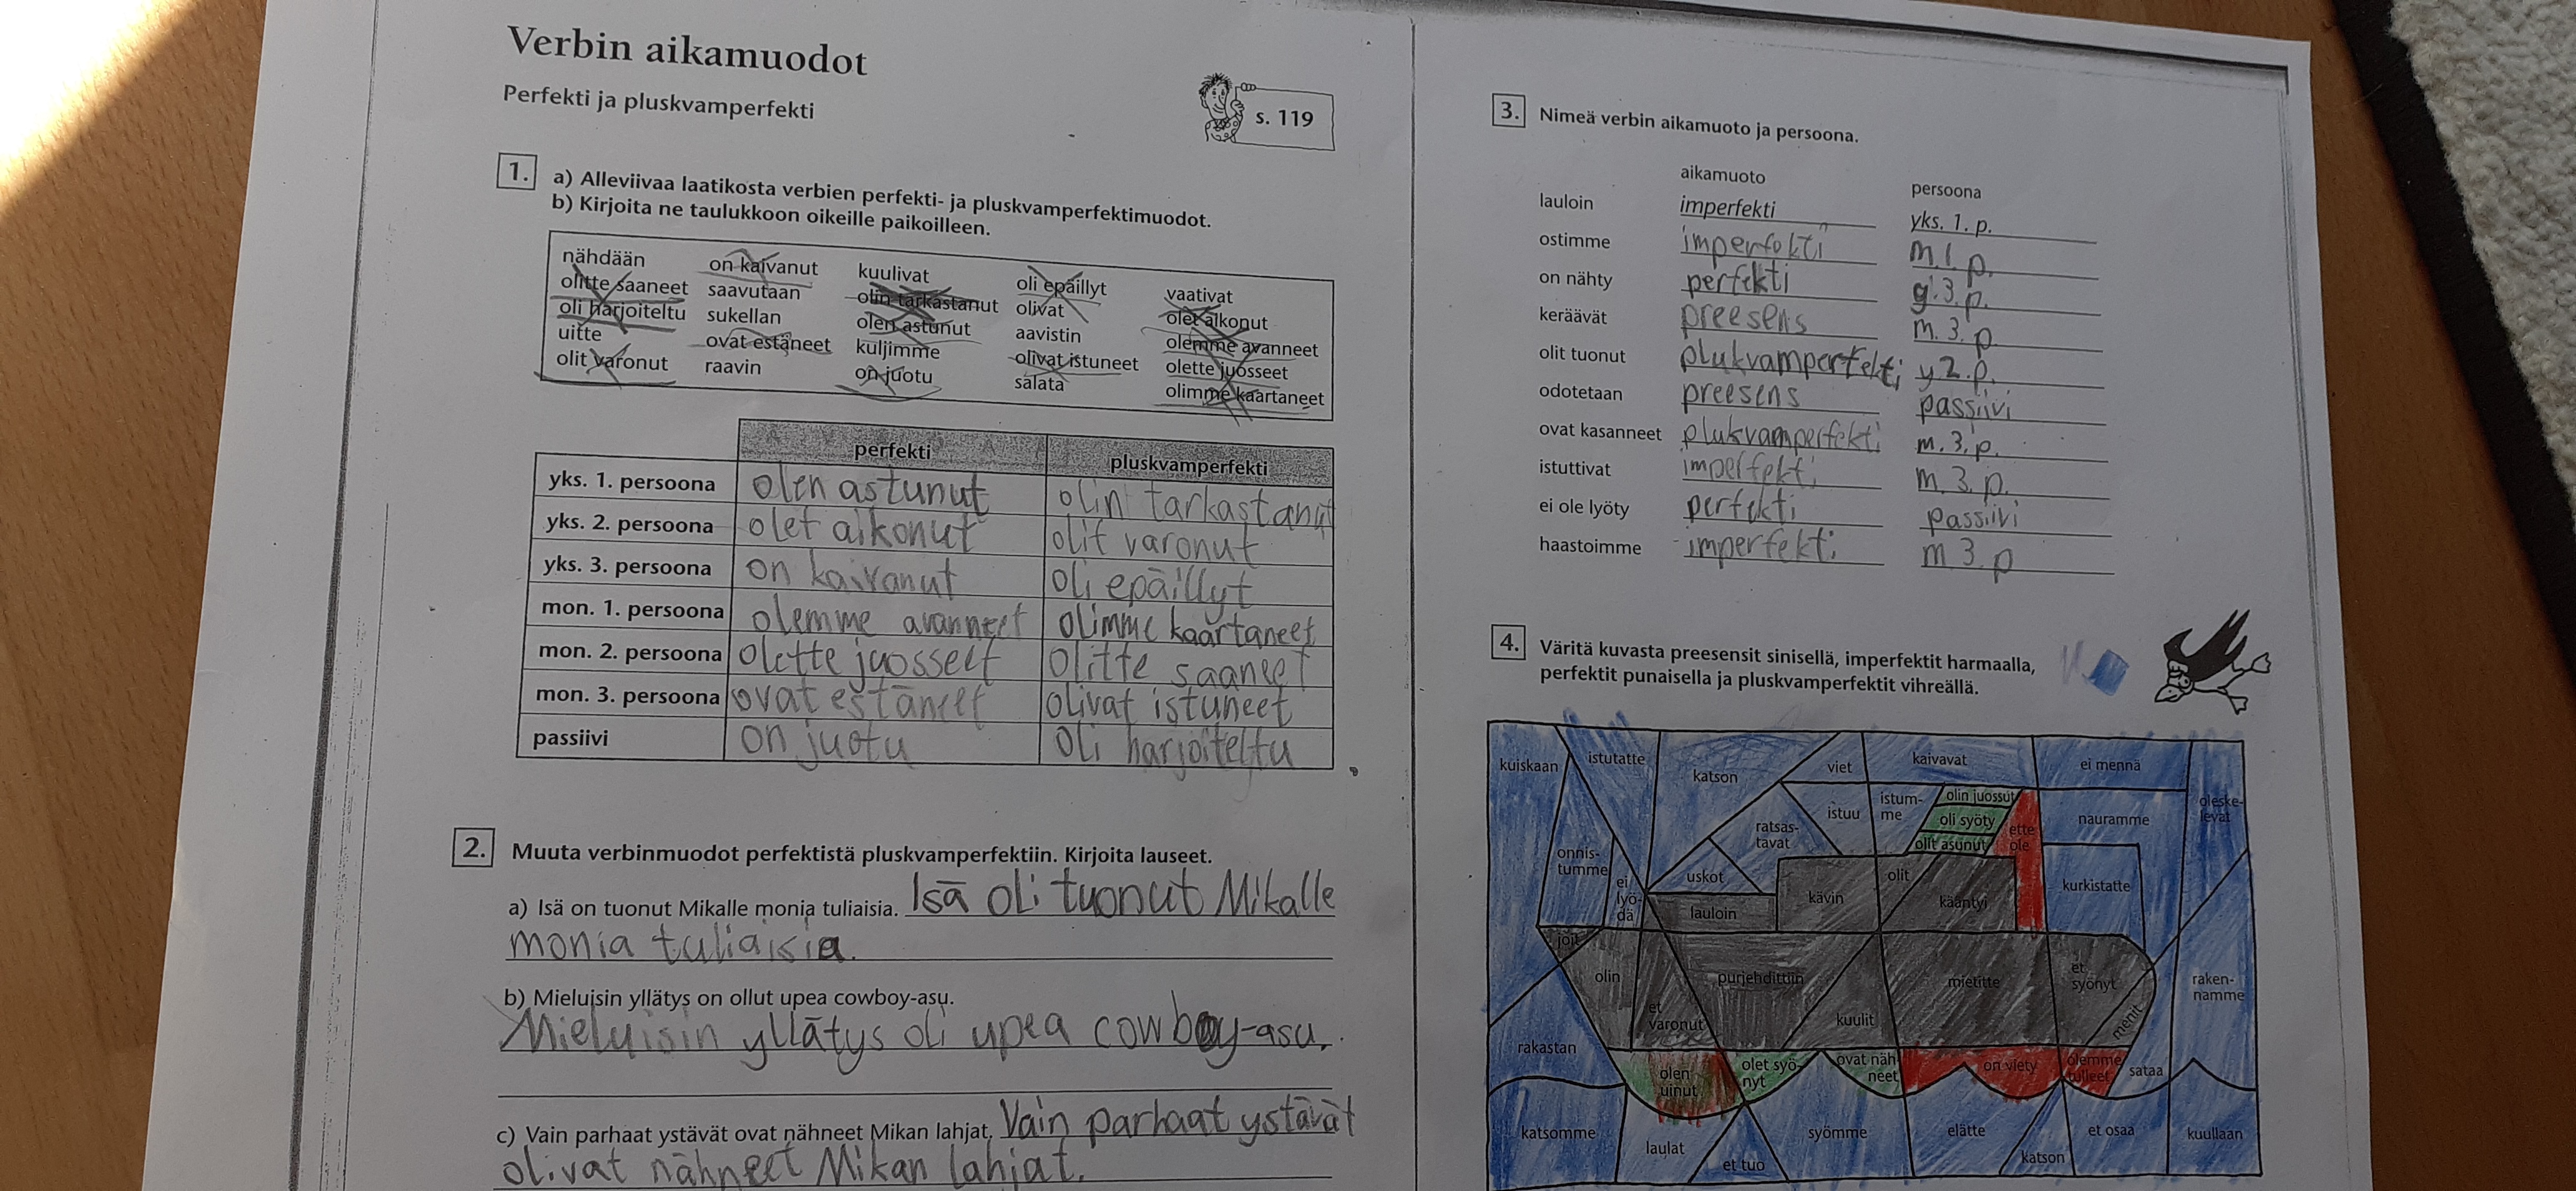 Verbin aikamuodot
Perfekti ja pluskvamperfekti
s. 119
1.
a) Alleviivaa laatikosta verbien perfekti- ja pluskvamperfektimuodot.
b) Kirjoita ne taulukkoon oikeille paikoilleen.
nähdään on kaivanut kuulivat oli epäillyt vaativat
olitte saaneet saavutaan olin tarkastanut olivat olet aikonut
oli harjoiteltu sukellan olen astunut aavistin olemme avanneet
uitte ovat estäneet kuljimme olivat istuneet olette juosseet
olit varonut raavin on juotu salata olimme kaartaneet
perfekti pluskvamperfekti
yks. 1. persoona olen astunut olin tarkastanut
yks. 2. persoona olet aikonut olit varonut
yks. 3. persoona on kaivanut oli epäillyt
mon. 1. persoona olemme avanneet olimme kaartaneet
mon. 2. persoona olette juosseet olitte saaneet
mon. 3. persoona ovat estäneet olivat istuneet
passiivi on juotu oli harjoiteltu
2. Muuta verbinmuodot perfektistä pluskvamperfektiin. Kirjoita lauseet.
a) Isä on tuonut Mikalle monia tuliaisia. Isä oli tuonut Mikalle
monia tuliaisia.
b) Mieluisin yllätys on ollut upea cowboy-asu.
Mieluisin yllätys oli upea cowboy-asu.
c) Vain parhaat ystävät ovat nähneet Mikan lahjat. Vain parhaat ystävät
olivat nähneet Mikan lahjat.
3. Nimeä verbin aikamuoto ja persoona.
aikamuoto persoona
lauloin imperfekti yks. 1. p.
ostimme imperfekti m. 1. p.
on nähty perfekti y. 3. p.
keräävät preesens m. 3. p.
olit tuonut plukvamperfekti y 2. p.
odotetaan preesens passiivi
ovat kasanneet plukvamperfekti m. 3. p.
istuttivat imperfekti m. 3. p.
ei ole lyöty perfekti passiivi
haastoimme imperfekti m 3. p
4. Väritä kuvasta preesensit sinisellä, imperfektit harmaalla,
perfektit punaisella ja pluskvamperfektit vihreällä.
kuiskaan istutatte katson viet kaivavat ei mennä
oleske-
levat
ratsas-
tavat
istuu
istum-
me
olin juossut
oli syöty
olit asunut
ette
ole
nauramme
onnis-
tumme
ei
lyö-
dä
uskot
lauloin
kävin
olit
kääntyi
kurkistatte
joit
olin
et
varonut
purjehdittiin
kuulit
mietitte
et
syönyt
menit
raken-
namme
rakastan
olen
uinut
olet syö-
nyt
ovat näh-
neet
on viety
olemme
tulleet
sataa
katsomme
laulat
et tuo
syömme
elätte
katson
et osaa
kuullaan